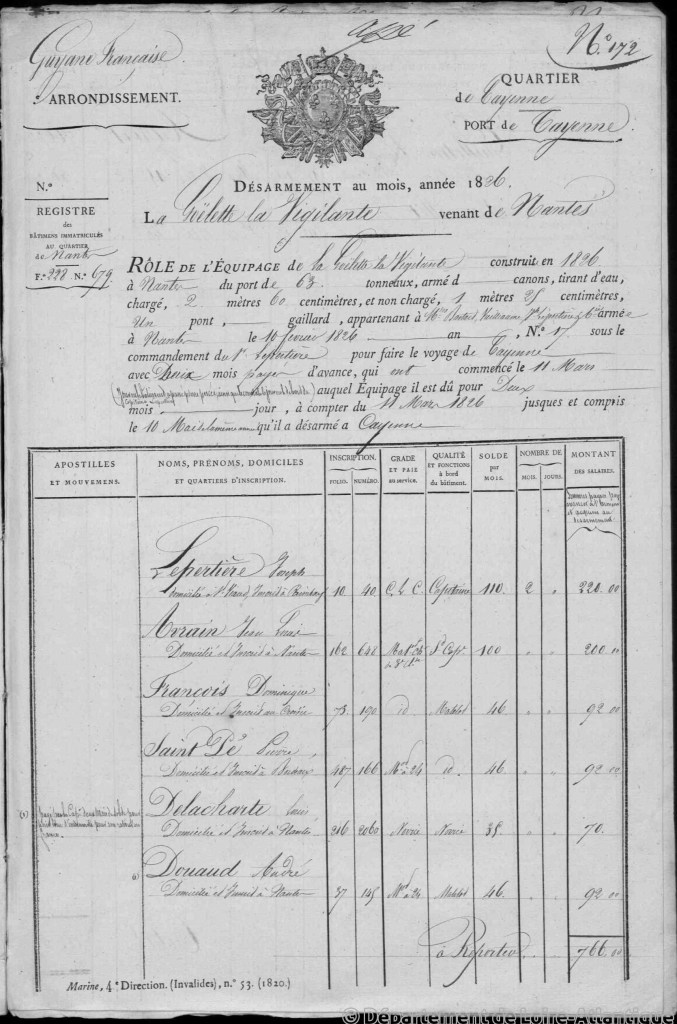 Guyane Française
ARRONDISSEMENT.
N.º 172
QUARTIER
de Cayenne
PORT de Cayenne.
DÉSARMEMENT au mois, année 1826.
LA Goëlette la Vigilante venant de Nantes
N.º
REGISTRE
DES
BÂTIMENS IMMATRICULÉS
AU QUARTIER
de Nantes
F.º 222 N.º 679
RÔLE DE L'ÉQUIPAGE de la Goëlette la Vigilante construit en 1826
à Nantes du port de 63 tonneaux, armé d canons, tirant d'eau,
chargé, 2 mètres 60 centimètres, et non chargé, 1 mètres 25 centimètres,
Un pont, gaillard, appartenant à armée
à Nantes le 10 février 1826 an , N.º 17 sous le
commandement du S.r Lepertière pour faire le voyage de Cayenne
avec Deux mois payés d'avance, qui ont commencé le 11 Mars
auquel Équipage il est dû pour Deux
mois jour, à compter du 11 Mars 1826 jusques et compris
le 10 Mai de la même année qu'il a désarmé à Cayenne
APOSTILLES
ET MOUVEMENS.
NOMS, PRÉNOMS, DOMICILES
ET QUARTIERS D'INSCRIPTION.
INSCRIPTION.
FOLIO. NUMÉRO.
GRADE
ET PAIE
au service.
QUALITÉ
ET FONCTIONS
à bord
du bâtiment.
SOLDE
par
MOIS.
NOMBRE DE
MOIS. JOURS.
MONTANT
DES SALAIRES.
Lepertière Joseph
10 40 C. L. C. Capitaine 110 2 " 220.00
Arrain Jean Louis
Domicilié et Inscrit à Nantes 162 648 S.d Cap.e 100 " " 200 "
François Dominique
Domicilié et Inscrit au Croisic 73. 190 id Matelot 46 " " 92 00
Saint Pé Pierre
Domicilié et Inscrit à Bordeaux 407 166 M.ot à 24 id. 46 " " 92.00
Delacharte Louis
Domicilié et Inscrit à Nantes 216 2060 Novice Novice 35 " " 70.
Douaud André
Domicilié et Inscrit à Nantes 37 145 M.ot à 24 Matelot 46 " " 92.00
à Reporter 766.00
Marine, 4.e Direction. (Invalides), n.º 53. (1820.)
© Département de Loire-Atlantique